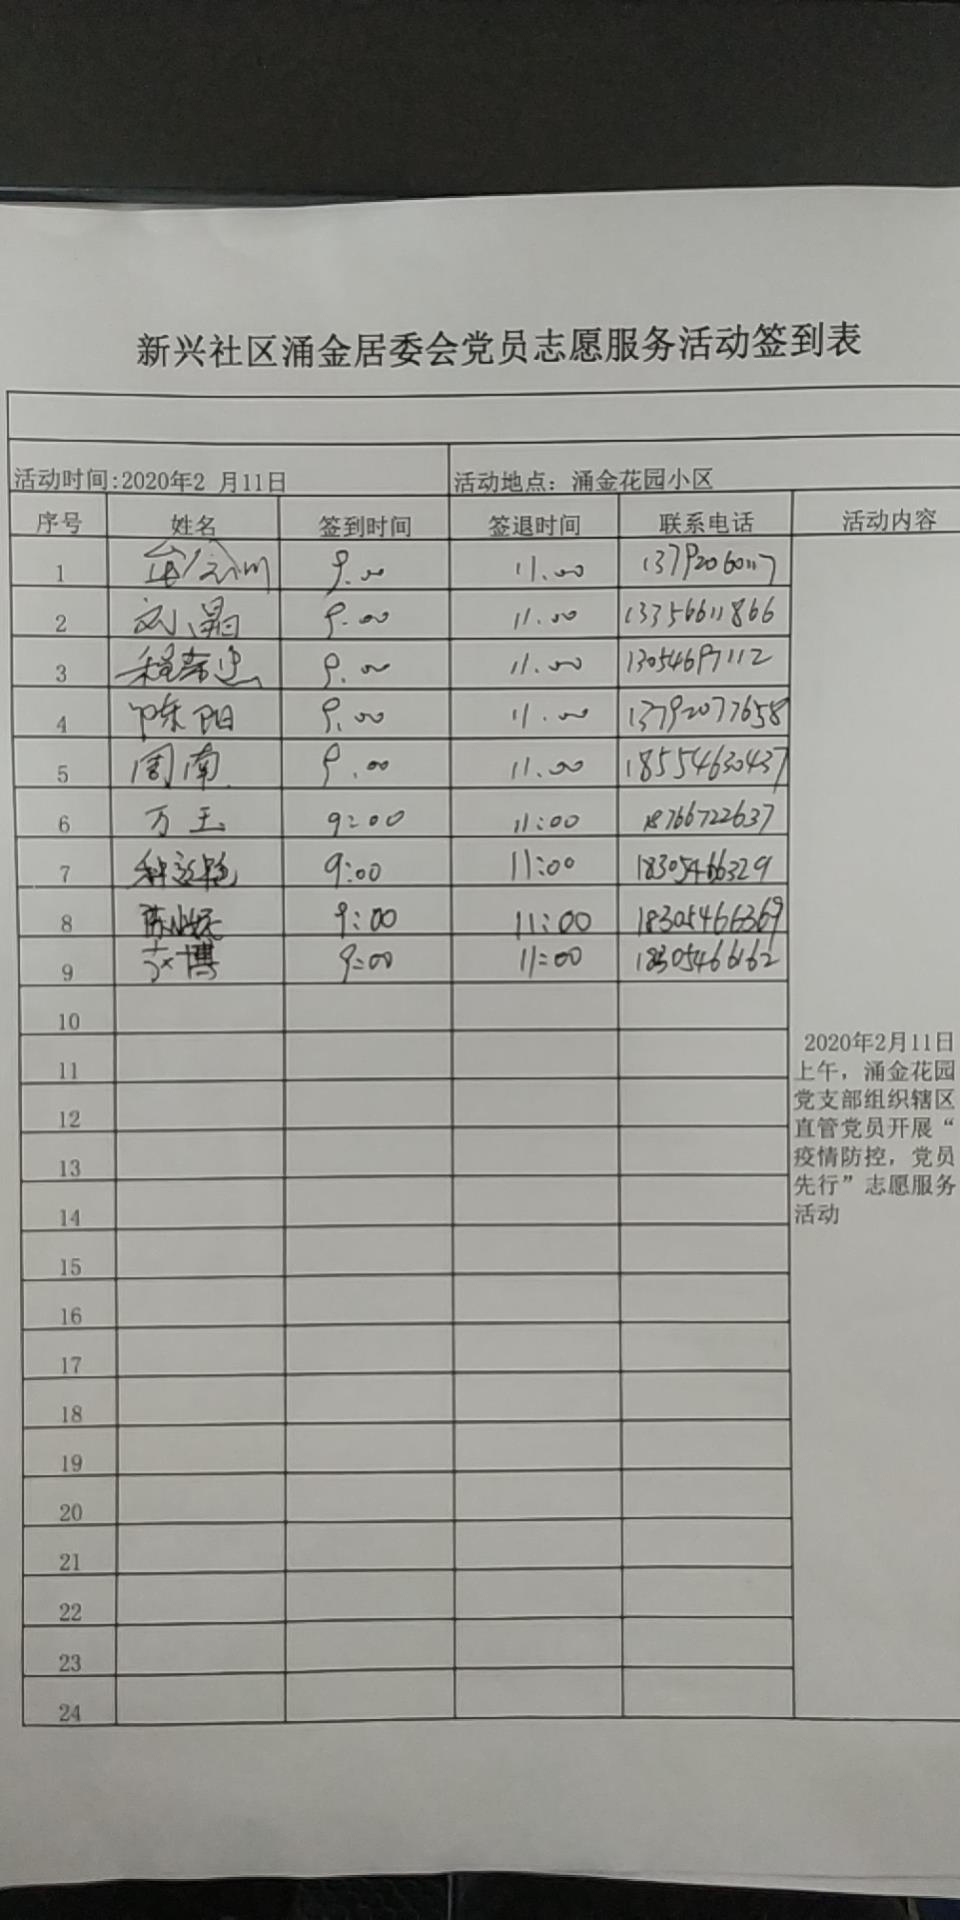 新兴社区涌金居委会党员志愿服务活动签到表
活动时间:2020年2 月11日 活动地点：涌金花园小区
序号 姓名 签到时间 签退时间 联系电话 活动内容
1 9.00 11.00
2 刘晶 9.00 11.00 13356611866
3 9.00 11.00 13054697112
4 陈阳 9.00 11.00 13792077658
5 周南 9.00 11.00 18554630437
6 万玉 9:00 11:00 18766722637
7 9:00 11:00 18305466329
8 9:00 11:00 18305466369
9 博 9:00 11:00 18305466162
10
11
12
13
14
15
16
17
18
19
20
21
22
23
24
2020年2月11日
上午，涌金花园
党支部组织辖区
直管党员开展“
疫情防控，党员
先行”志愿服务
活动